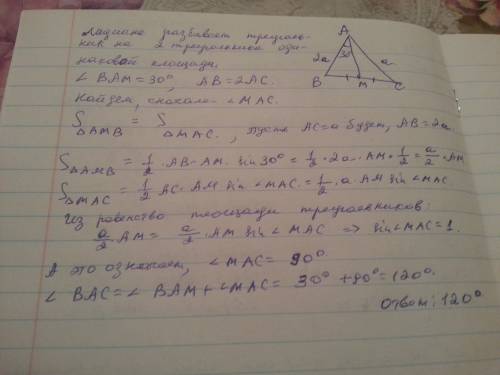 Медиана разбивает треуголь-
ник на 2 треугольника оди-
наковой площади.
∠ BAM = 30°, AB = 2AC.
Найдем, сначала ∠ MAC.
S ΔAMB = S ΔMAC. , Пусть AC = a будет, AB = 2a.
S ΔAMB = 1/2 · AB · AM · sin 30° = 1/2 · 2a · AM · 1/2 = a/2 · AM
S ΔMAC = 1/2 AC · AM sin ∠ MAC = 1/2 · a · AM sin ∠ MAC.
Из равенство площади треугольников:
a/2 · AM = a/2 · AM sin ∠ MAC ⇒ sin ∠ MAC = 1.
А это означает, ∠ MAC = 90°.
∠ BAC = ∠ BAM + ∠ MAC = 30° + 90° = 120°.
Ответ: 120°
A
2a 30° a
B M C